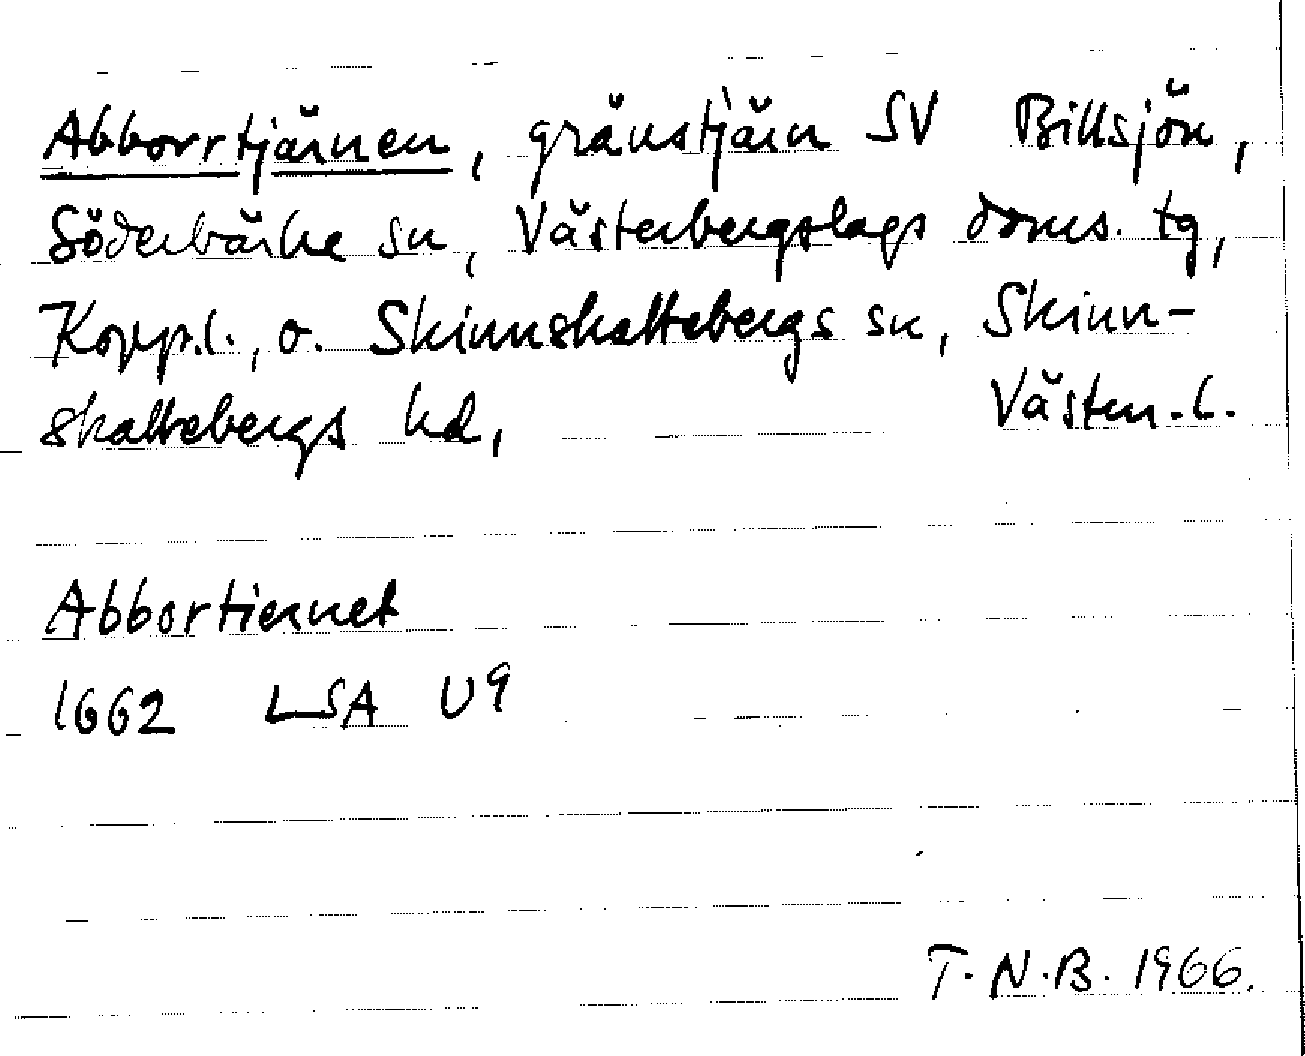 Abborrtjärnen, gränstjärn SV Billsjön,
Söderbärke sn, Västerbergslags doms. tg,
Kopp.l., o. Skinnskattebergs sn, Skinn-
skattebergs hd, Västm.l.
Abbortiernet
1662 LSA U9
T.N.B. 1966.